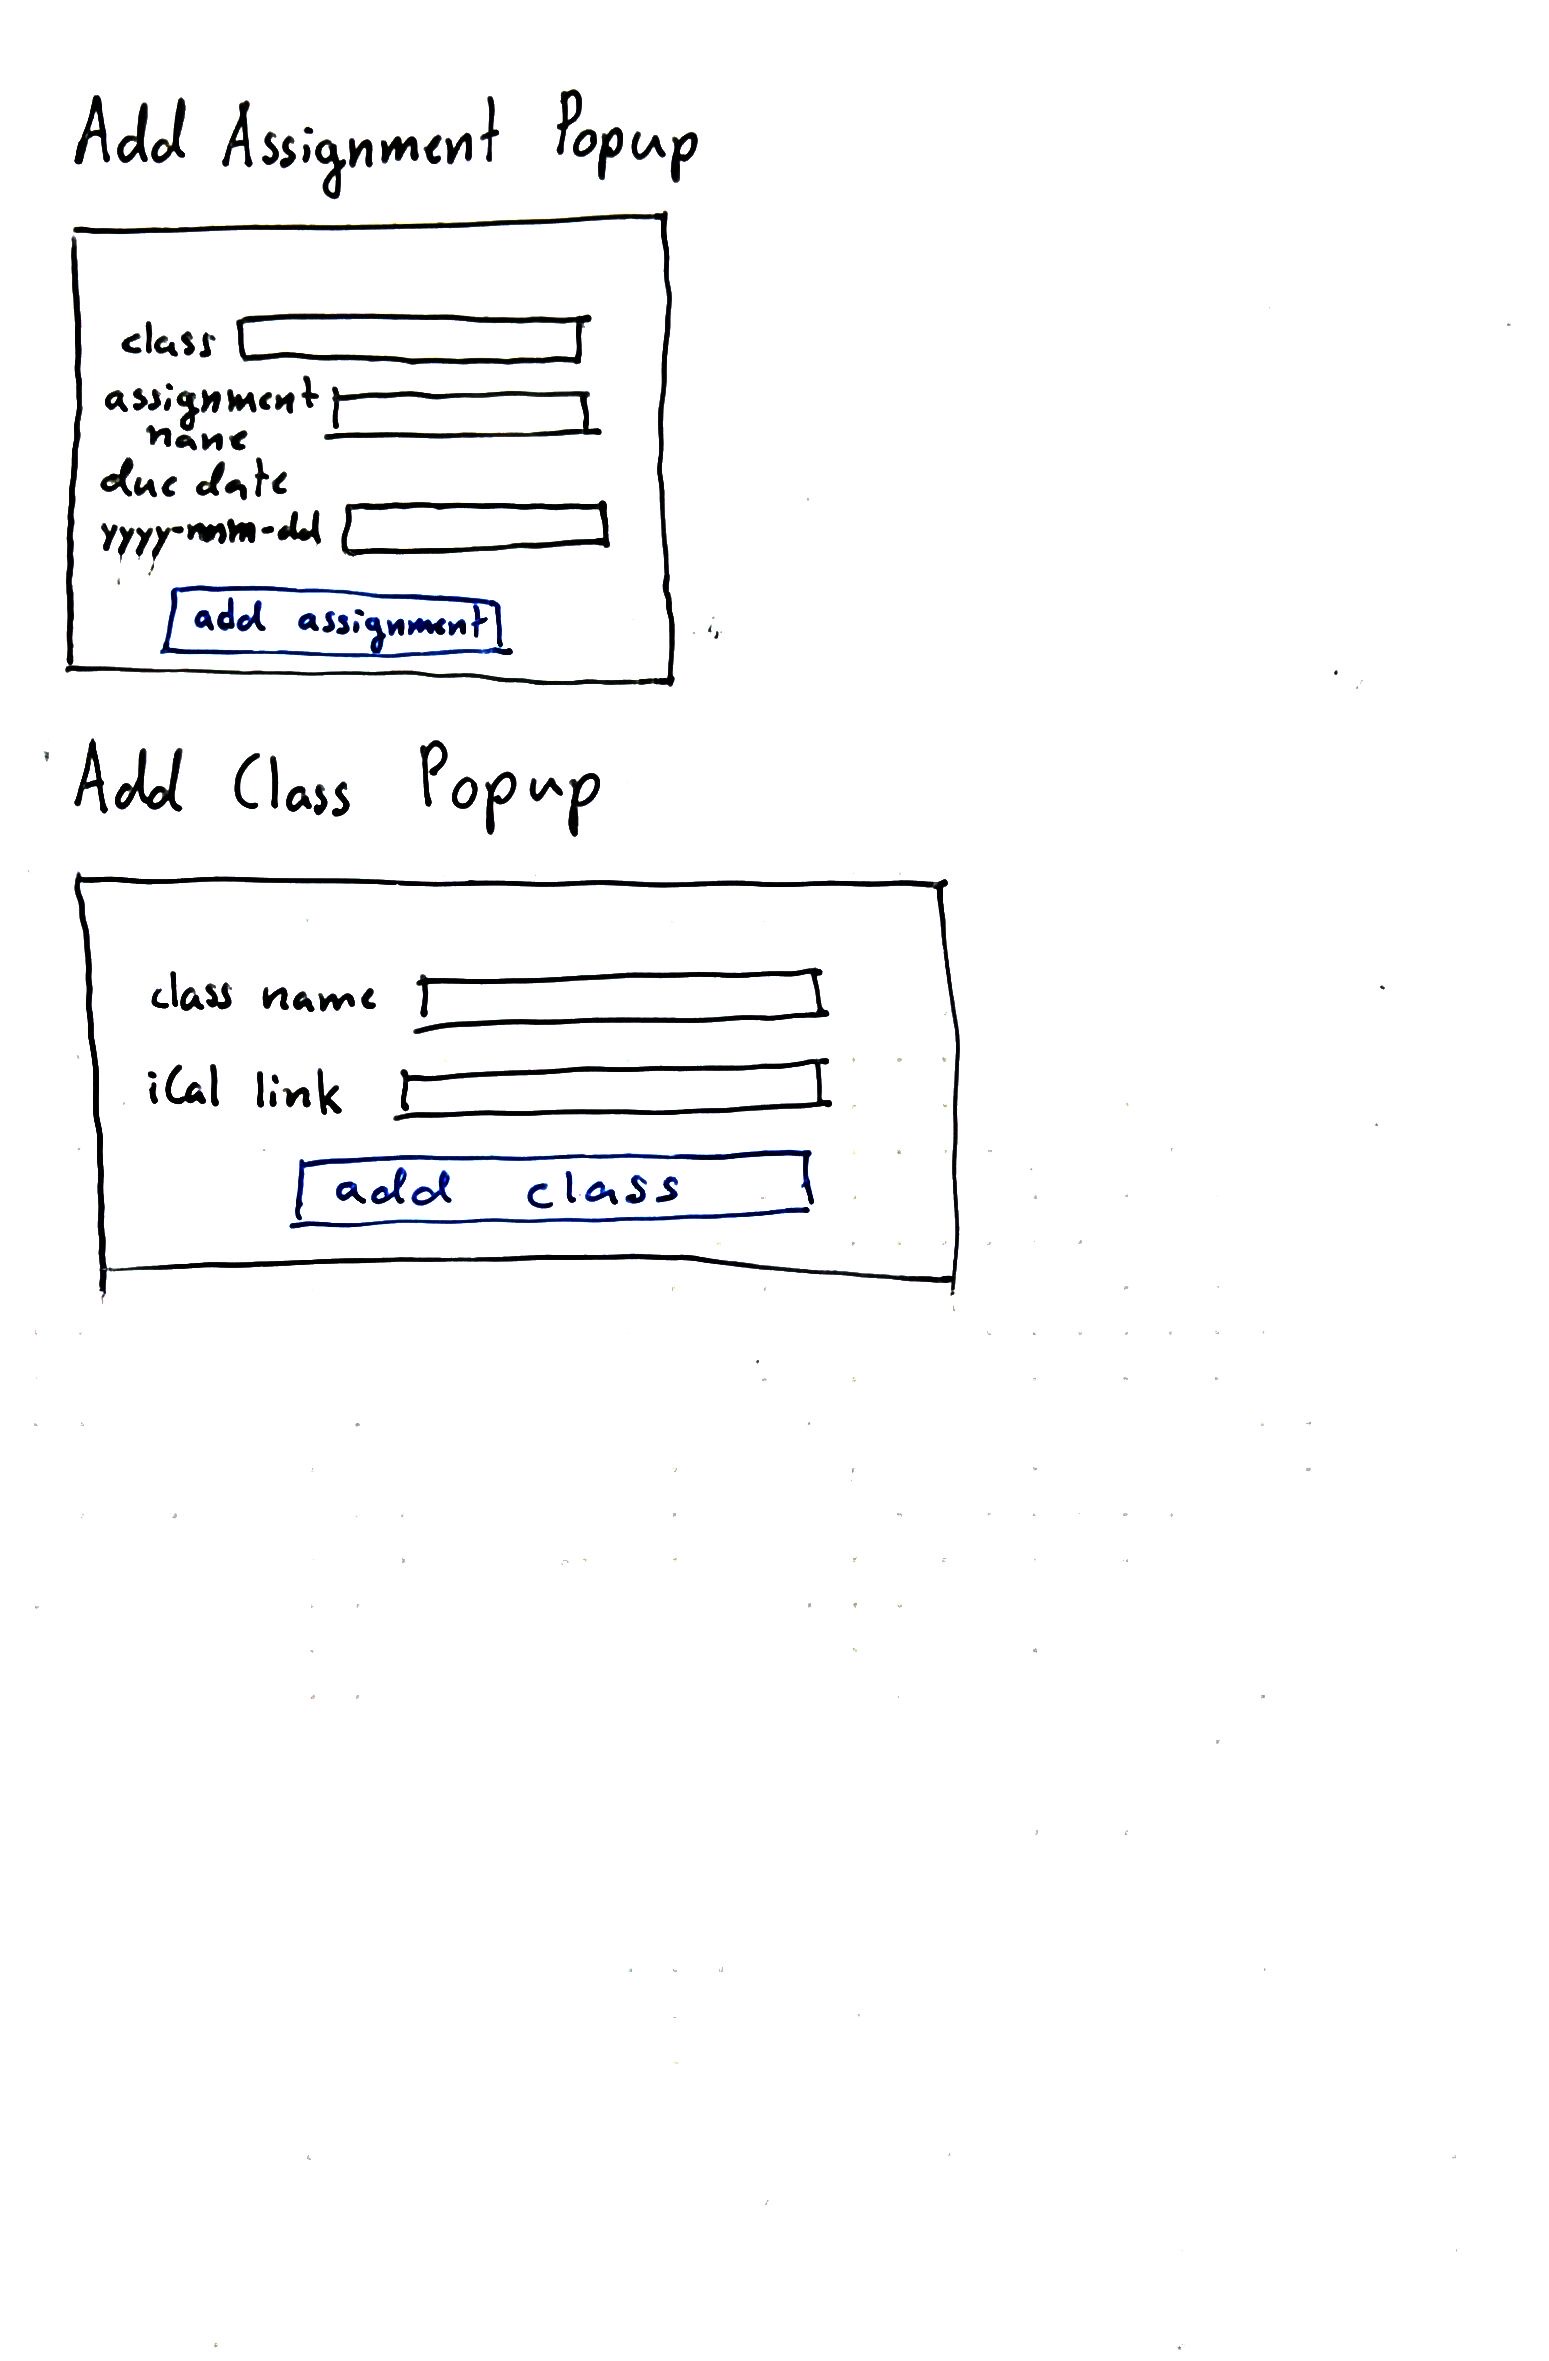 Add Assignment Popup
class
assignment
name
due date
yyyy-mm-dd
add assignment
Add Class Popup
class name
iCal link
add class